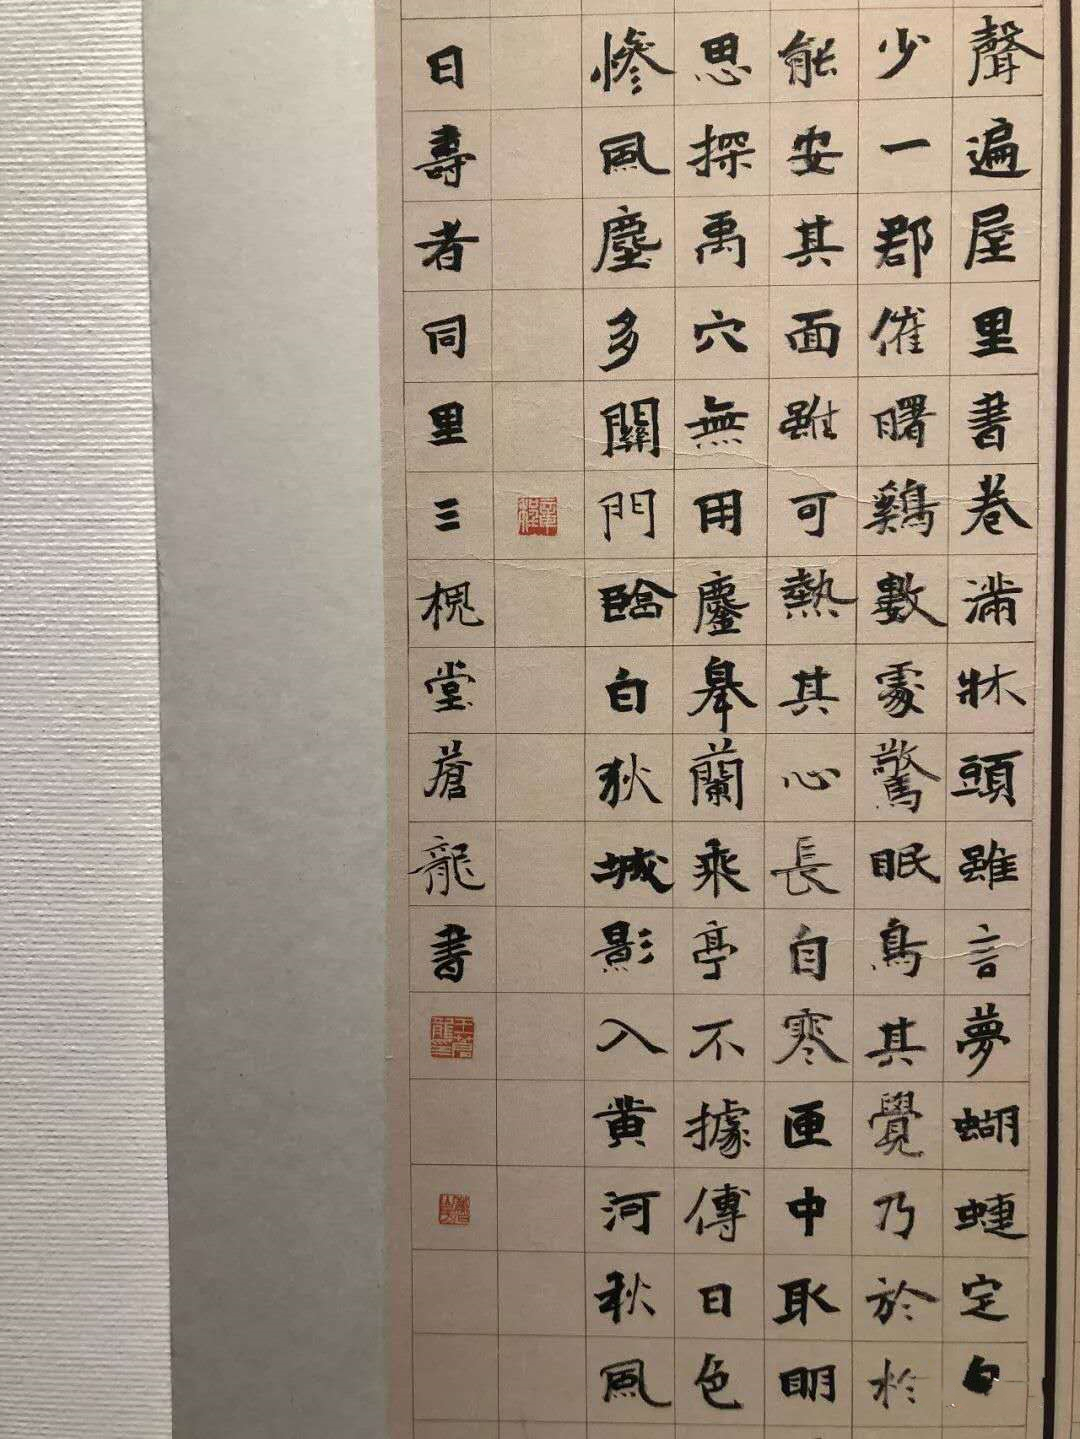 聲遍屋里書卷滿牀頭雖言夢蝴蝶定自
少一郡催曙鷄數處驚眠鳥其覺乃於於
能安其面雖可熱其心長自寒匣中取明
思探禹穴無用鏖皋蘭乘亭不據傳日色
慘風塵多關門臨白狄城影入黃河秋風
日壽者同里三槐堂蒼龍書